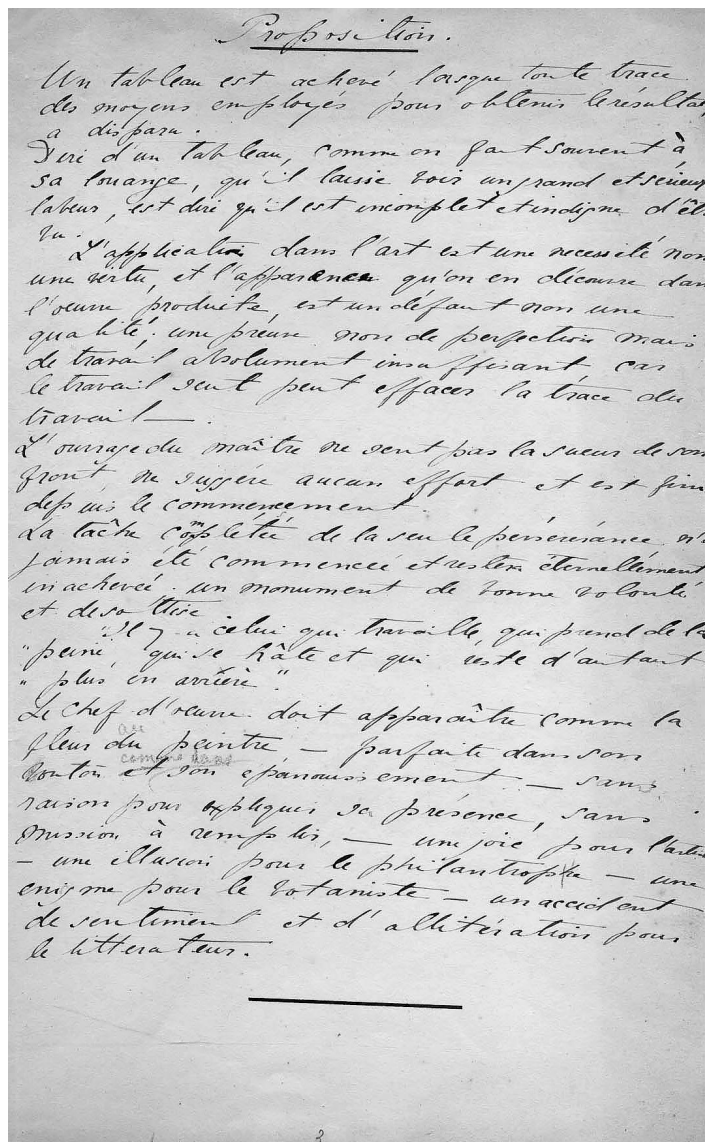 Proposition.
Un tableau est achevé lorsque toute trace
des moyens employés pour obtenir le résultat,
a disparu.
Dire d'un tableau, comme on fait souvent à
sa louange, qu'il laisse voir un grand et sérieux
labeur, est dire qu'il est incomplet et indigne d'êt
vu.
L'application dans l'art est une necessité non
une vertu, et l'apparence qu'on en découvre dan
l'oeuvre produite, est un défaut non une
qualité; une preuve non de perfection mais
de travail absolument insuffisant car
le travail seul peut effacer la trace du
travail—.
L'ouvrage du maître ne sent pas la sueur de son
front, ne suggére aucun effort et est fini
depuis le commencement.
La tâche complétée de la seule persévérance n'a
jamais été commencée et restera éternellement
inachevée. un monument de bonne volonté
et de sottise
"Il y a celui qui travaille, qui prend de la
"peine, qui se hâte et qui reste d'autant
" plus en arrière."
Le chef d'oeuvre doit apparaître comme la
fleur du peintre — parfaite dans son
au
comme dans
bouton et son épanouissement — sans
raison pour expliquer sa présence, sans
mission à remplir, — une joie pour l'artiste
— une illusion pour le philantrope — une
enigme pour le botaniste — un accident
de sentiment et d'allitération pour
le littérateur.
3